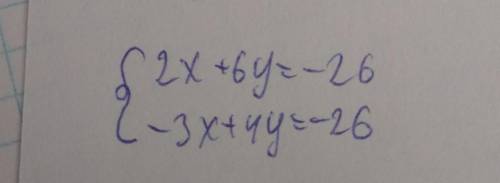 2x+6y=-26
-3x+4y=-26